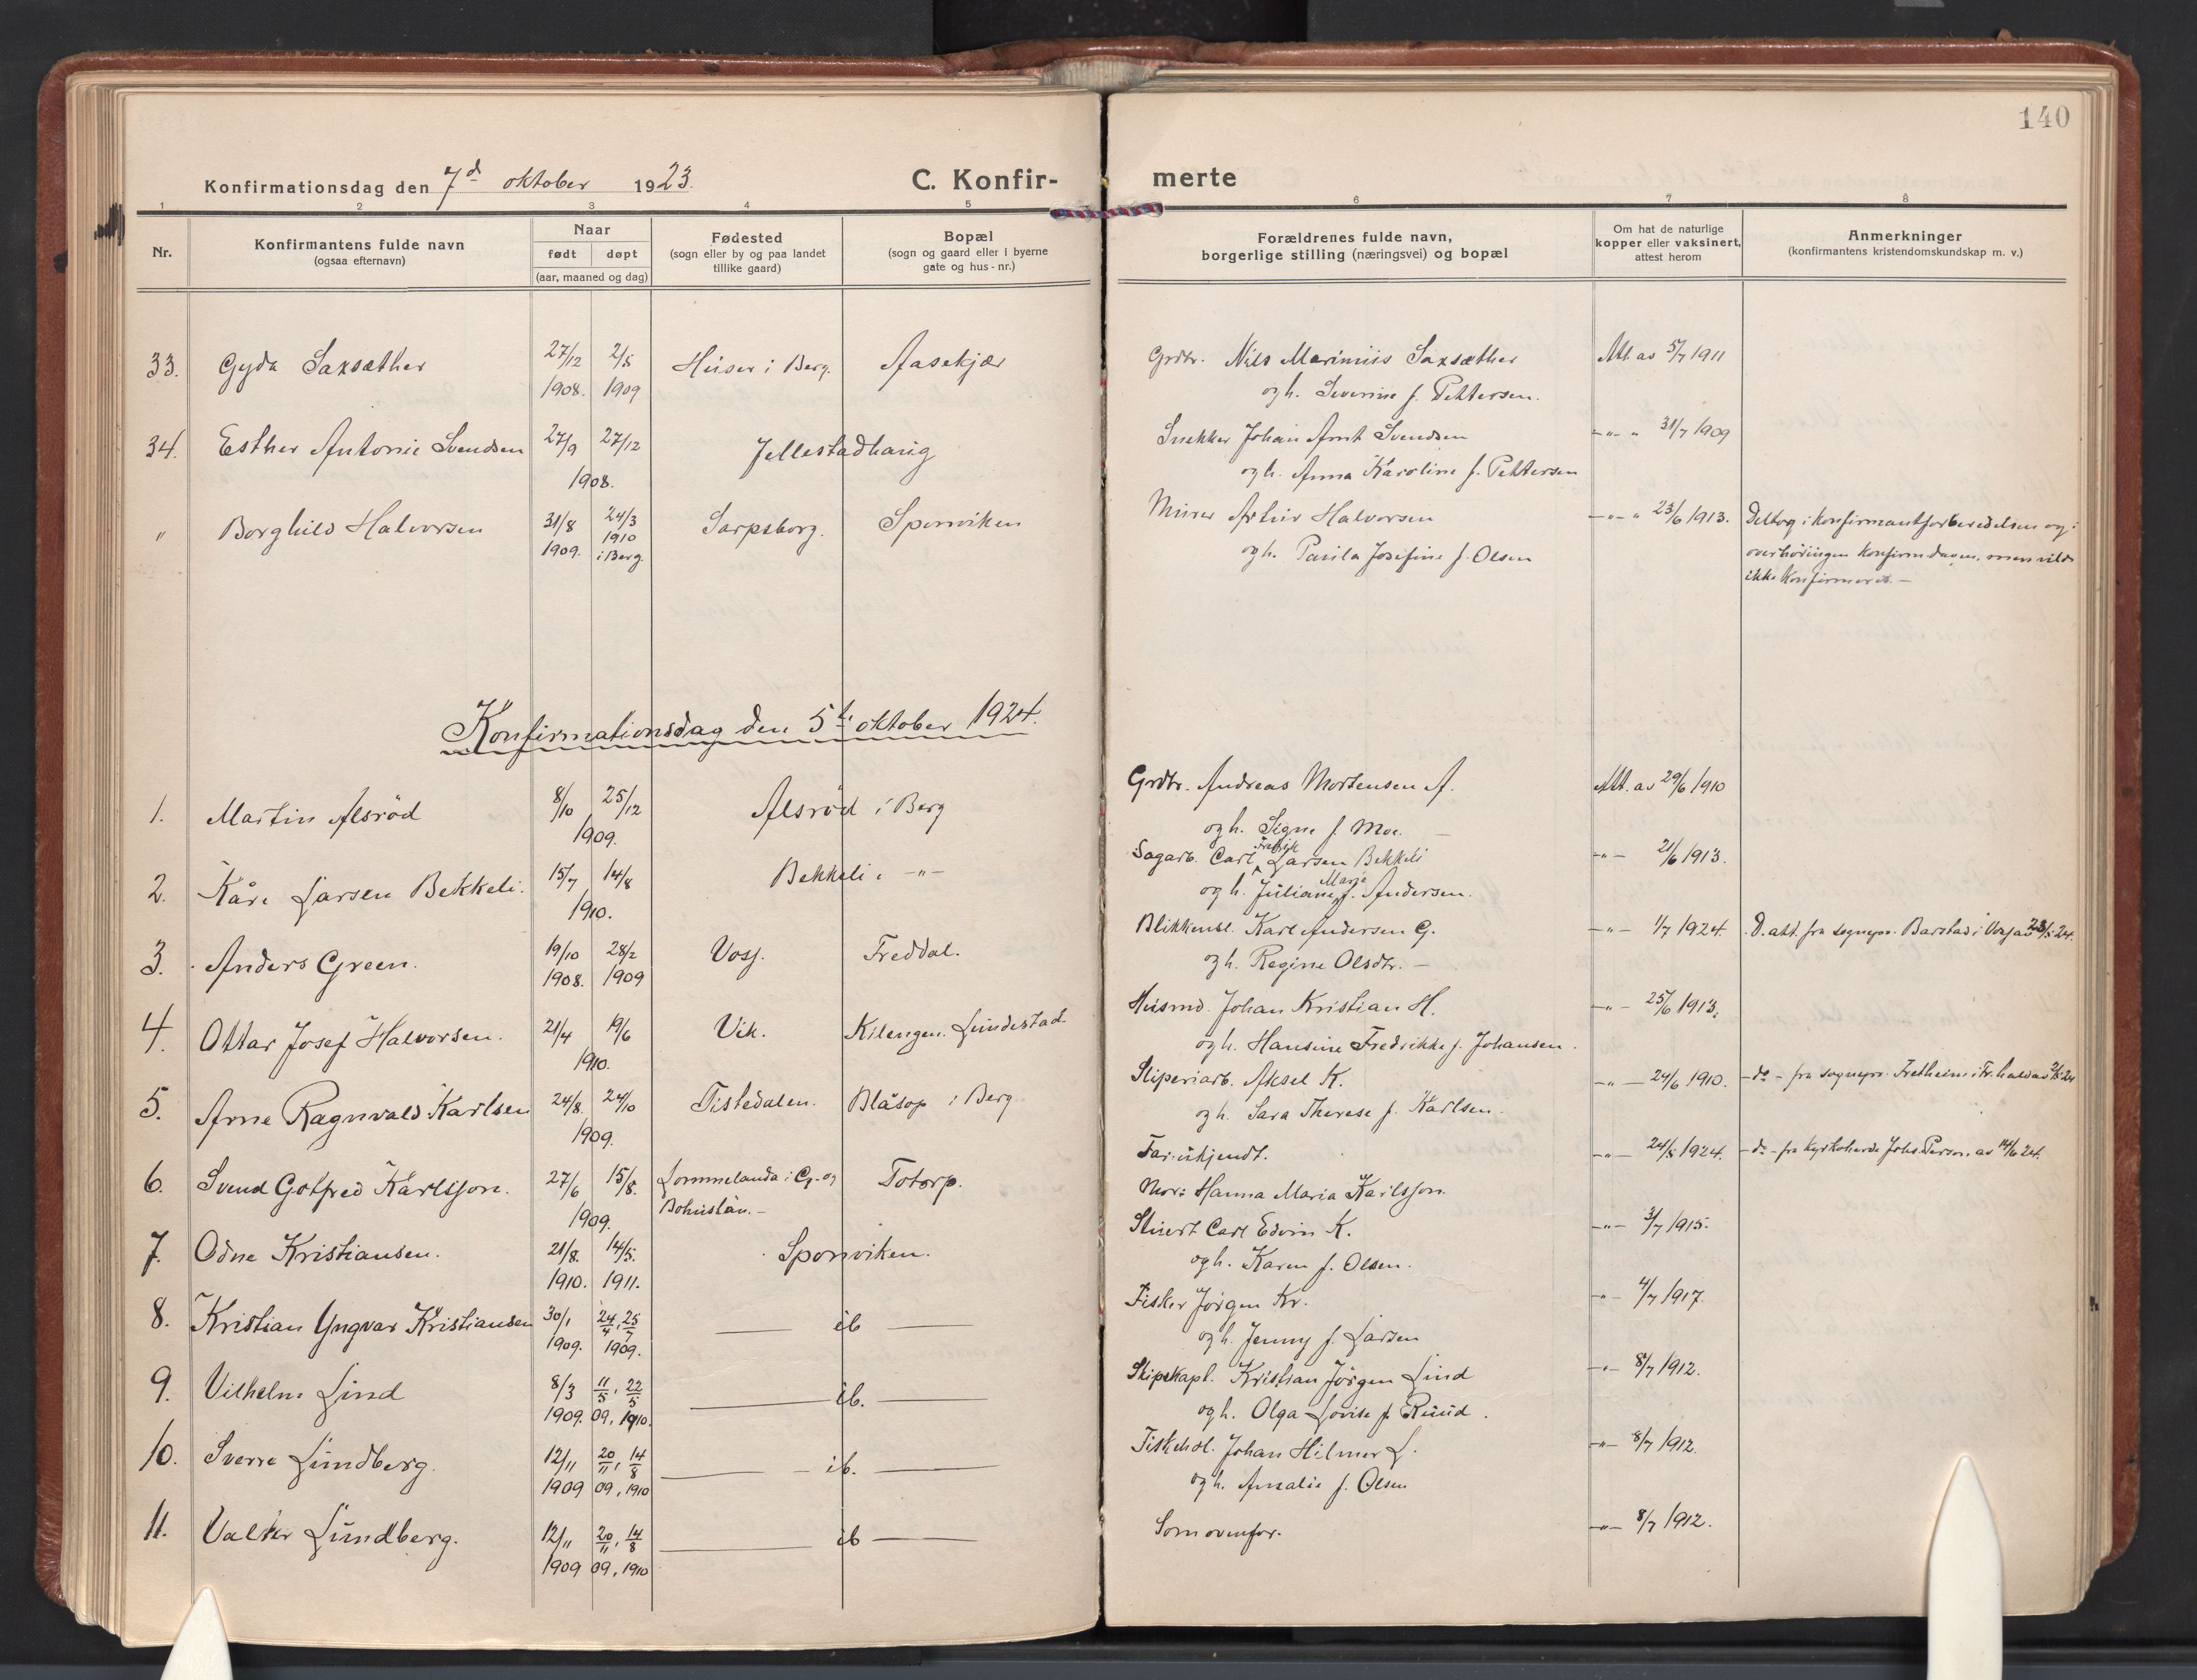 140
Konfirmationsdag den 7d oktober 1923.
C. Konfir-
merte
1 2 3 4 5 6 7 8
Nr.
Konfirmantens fulde navn
(ogsaa efternavn)
Naar
født døpt
(aar, maaned og dag)
Fødested
(sogn eller by og paa landet
tillike gaard)
Bopæl
(sogn og gaard eller i byerne
gate og hus-nr.)
Forældrenes fulde navn,
borgerlige stilling (næringsvei) og bopæl
Om hat de naturlige
kopper eller vaksinert,
attest herom
Anmerkninger
(konfirmantens kristendomskundskap m. v.)
33. Gyda Saxsæther 27/12 2/5 Huser i Berg. Aasekjær Grdbr. Nils Marinius Saxsæther Att av 5/7 1911
1908. 1909 og h. Severine f. Pettersen.
34. Esther Antonie Svendsen 27/9 27/12 Jellestadhaug Snekker Johan Arnt Svendsen -"- " 31/7 1909
1908. og h. Anna Karoline f. Pettersen
" Borghild Halvorsen 31/8 24/3 Sarpsborg. Sponviken Murer Artur Halvorsen -"- " 23/6 1913. Deltog i konfirmantforberedelsen og i
1909. 1910 i Berg og h. Paula Josefine f. Olsen overhöringen konfirm.dagen, men vilde
ikke konfirmeres. -
Konfirmationsdag den 5te oktober 1924.
1. Martin Alsröd 8/10 25/12 Alsröd i Berg Grdbr. Andreas Mortensen A. Att. av 29/6 1910
1909. og h. Signe f. Moe. -
2. Kåre Larsen Bekkeli. 15/7 14/8 Bekkeli i -"- Sagarb. Carl Fredrik Larsen Bekkeli -"- 21/6 1913.
1910. og h. Juliane Marie f. Andersen.
3. Anders Green. 19/10 28/2 Voss. Freddal. Blikkensl. Karl Andersen G. -"- 1/7 1924. D. att. fra sognepr. Barstad i Voss av 23/5 24.
1908. 1909 og h. Regine Olsdtr. -
4. Ottar Josef Halvorsen. 21/4 19/6 Vik. Kilengen. Lundestad. Husmd. Johan Kristian H. -"- 25/6 1913.
1910. og h. Hansine Fredrikke f. Johansen.
5. Arne Ragnvald Karlsen 24/8. 24/10 Tistedalen. Blåsop i Berg Sliperiarb. Aksel K. -"- 24/6 1910. - do - fra sognepr. Fretheim i Fr.hald av
1909. og h. Sara Therese f. Karlsen.
6. Svend Gotfred Karlsson. 27/6 15/8. Lommelanda i G.- og Totorp. Far: ukjendt. -"- 24/5 1924. - do - fra Kyrkoherde Johs. Person. av 14/6 24.
1909. Bohuslän. - Mor: Hanna Maria Karlsson.
7. Odne Kristiansen. 21/8. 14/5. Sponviken. Stuert Carl Edvin K. -"- 3/7 1915.
1910. 1911. og h. Karen f. Olsen.
8. Kristian Yngvar Kristiansen 30/1 24/4, 25/7 ib Fisker Jörgen Kr. -"- 4/7 1917.
1909. 1909. og h. Jenny f. Larsen
9. Vilhelm Lind 8/3 11/5, 22/5 ib. Skipskapt. Kristian Jörgen Lind -"- 8/7 1912.
1909. 09, 1910. og h. Olga Lovise f. Ruud.
10. Sverre Lundberg. 12/11 20/11, 14/8 ib. Fiskehdl. Johan Hilmer L. -"- 8/7 1912.
1909 09, 1910 og h. Amalie f. Olsen
11. Valter Lundberg. 12/11 20/11, 14/8 ib Som ovenfor. -"- 8/7 1912.
1909 09, 1910